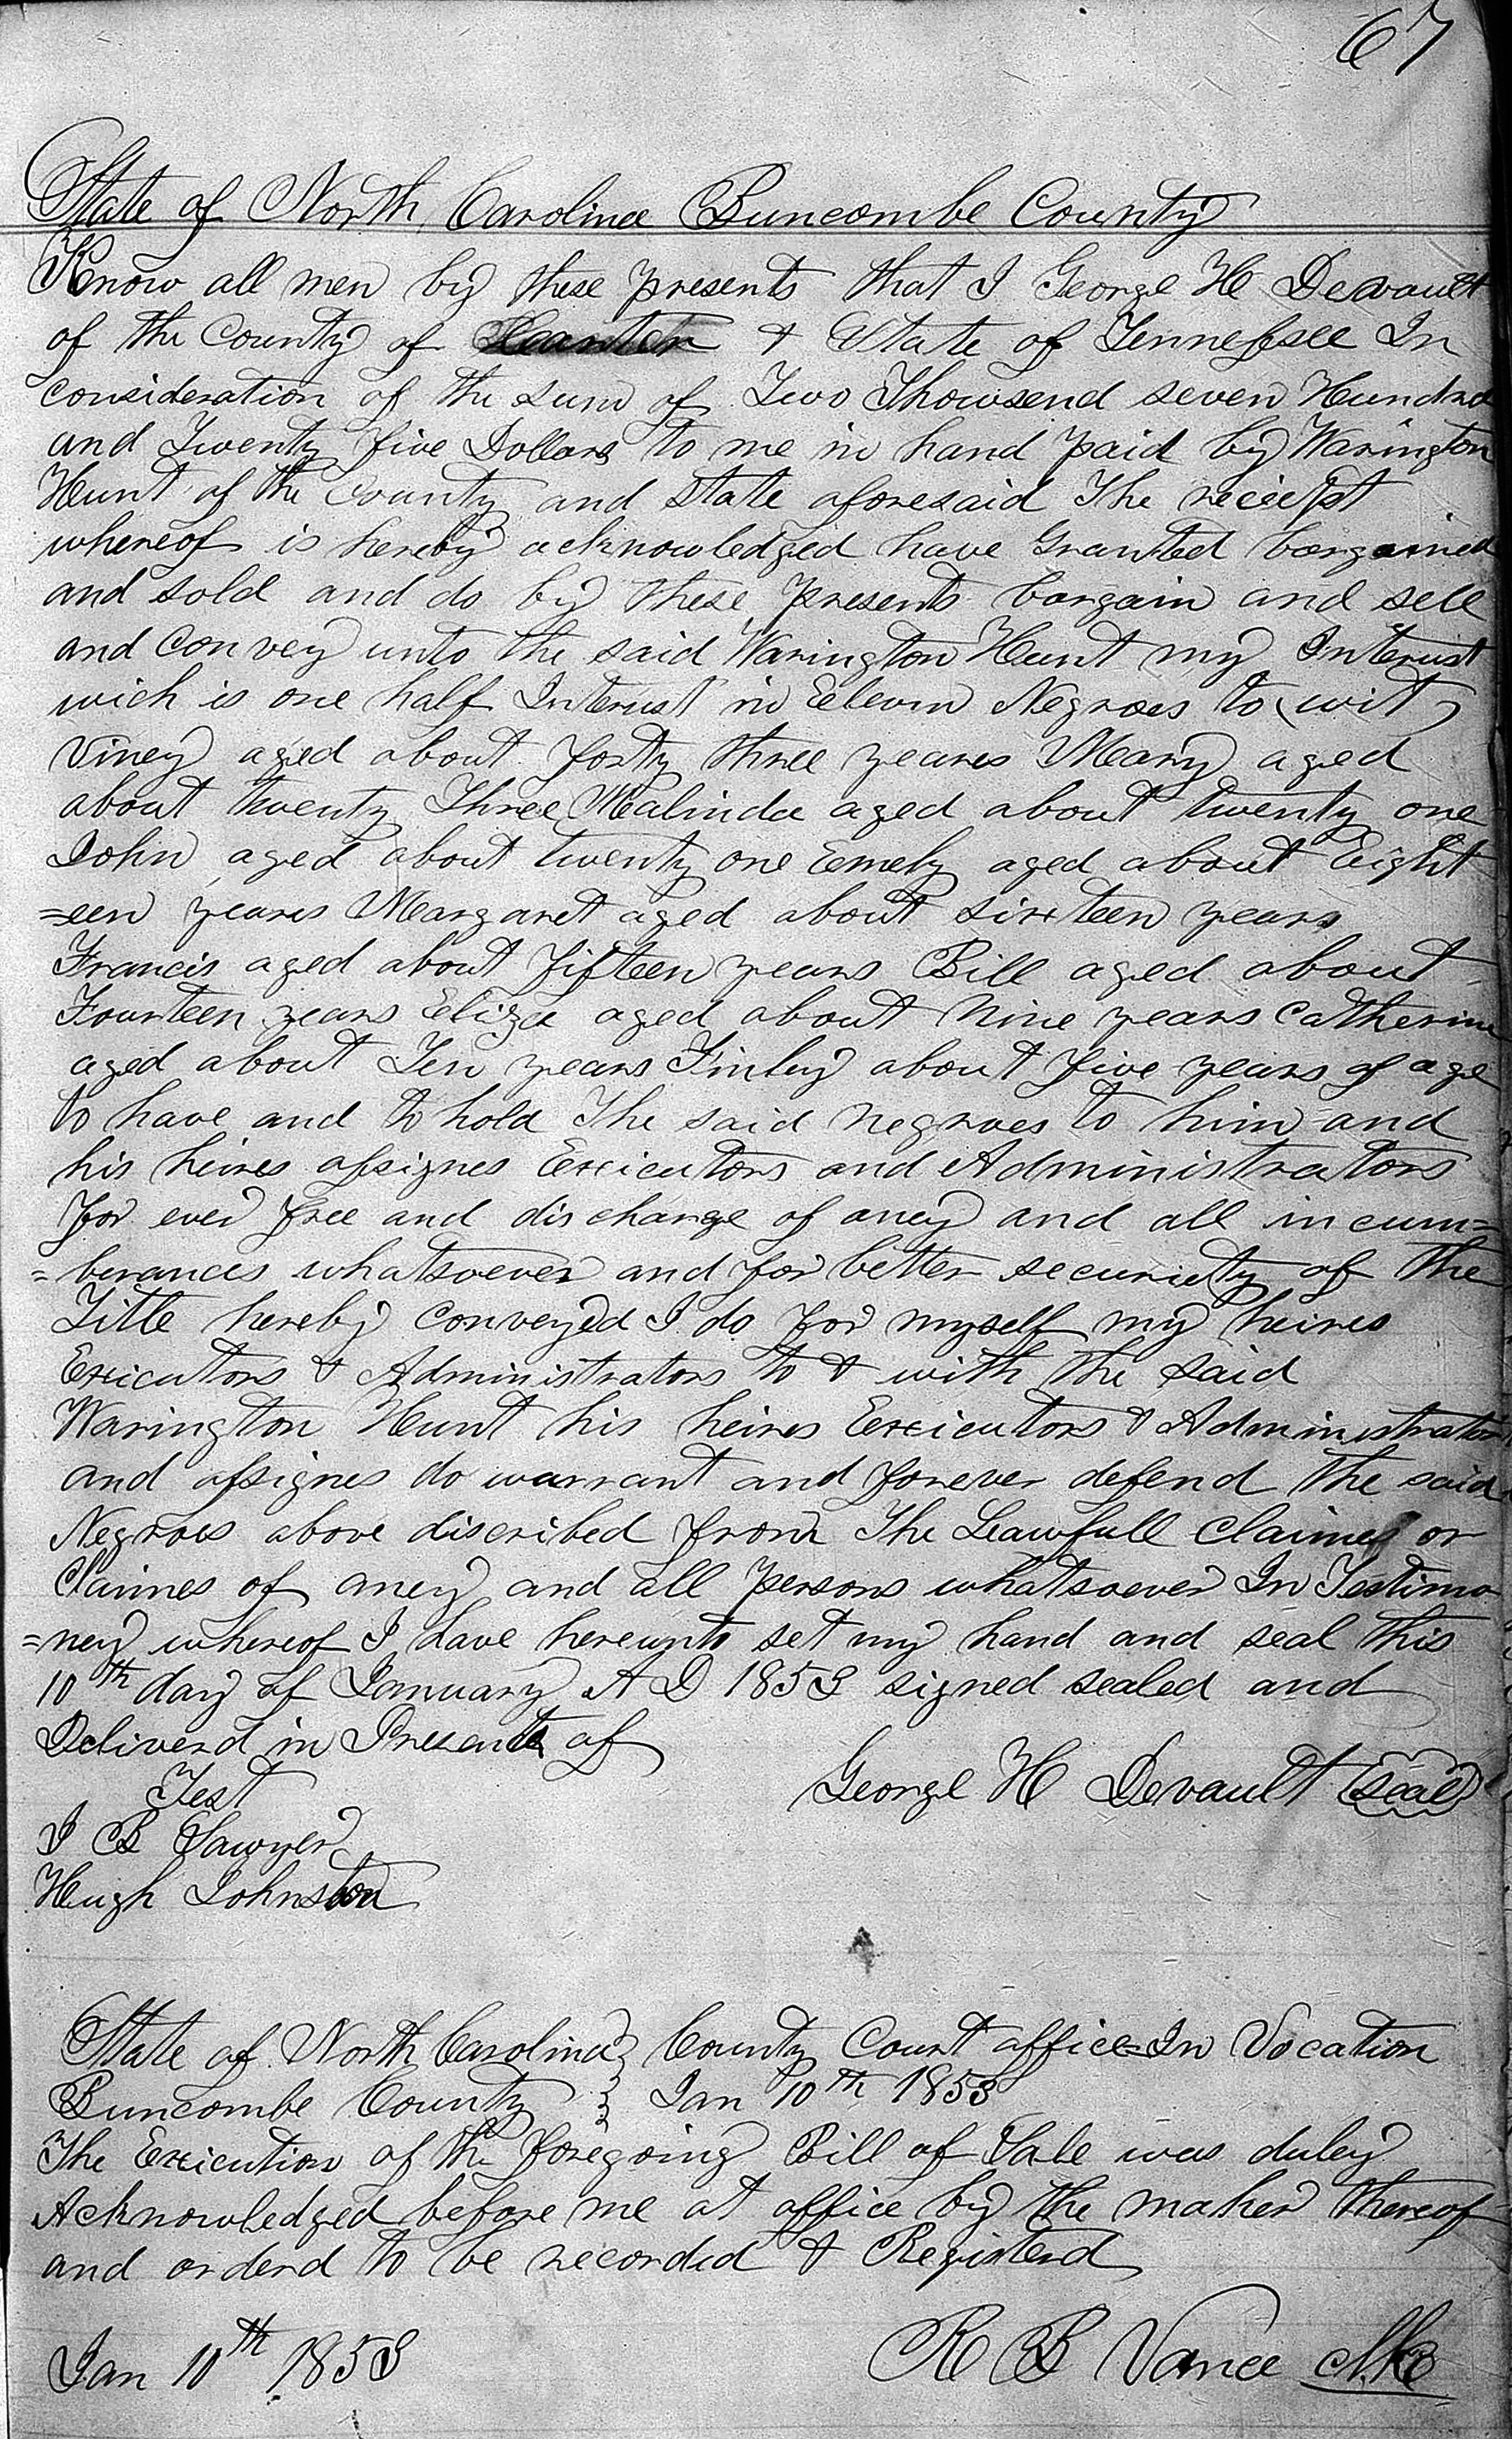 67
State of North Carolina Buncombe County
Know all men by these presents that I George H Devault
of the County of & State of Tennessee In
consideration of the sum of Two Thowsend seven Hundred
and Twenty five Dollars to me in hand paid by Warington
Hunt of the County and State aforesaid The reciept
whereof is hereby acknowledged have Granted bargained
and sold and do by these presents bargain and sell
and convey unto the said Warington Hunt my Interust
wich is one half Interust in Eelevn Negroes to wit
Viney aged about forty three yeares Mary aged
about twenty Three Malinda aged about twenty one
John aged about twenty one Eemely aged about Eight
=een yeares Margaret aged about sixteen years
Francis aged about fifteen years Bill aged about
Fourteen years Eliza aged about nine years Catherine
aged about Ten years Finley about five years of age
to have and to hold The said negroes to him and
his heires assignes Exicutors and Administrators
for ever free and discharge of aney and all incum=
=berances whatsoever and for better securiety of the
Title hereby conveyed I do for myself my heires
Exicutors & Administrators to & with the said
Warington Hunt his heires Eexicutors & Administrators
and assignes do warrant and forever defend the said
Negroes above discribed from The Leawfull claimes or
Claimes of aney and all persons whatsoever In Testimo
=ney whereof I have hereunto set my hand and seal this
10th day of January A D 1853 signed sealed and
Deliverd in Presents of
George H Devault (seal)
Test
J B Sawyer
Hugh Johnston
State of North Carolina } County Court office In Vocation
Buncombe County } Jan 10th 1853
The Exicution of the foregoing Bill of Sale was duley
Acknowledged before me at office by the maker thereof
and orderd to be recorded & Registerd
Jan 10th 1853
R B Vance clk